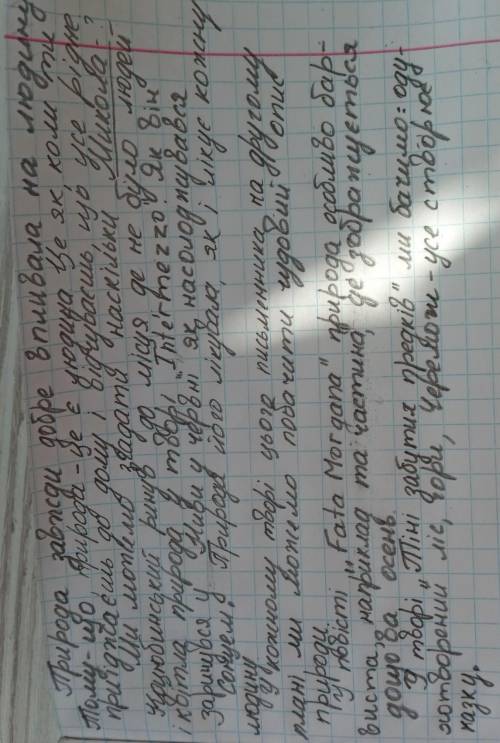 Природа завжди добре впливала на людину
тому-що природа - це є людина. Це як, коли ти
приїджаєшь до дому і відчуваєшь, що усе рідне.
Ми можемо згадати наскільки Микола
Коцюбинський линув до місця де не було людей
і квітла природа у творі "Intermezzo". Як він
зарився у Ниви у червні, як насолоджувався
Сонцем. Природа його лікувала, як і лікує кожну
людину.
У кожному творі цього письменника на другому
плані ми можемо побачити чудовий опис
природи.
У повісті "Fata Morgana" природа особливо бар-
виста, наприклад та частина, де зображується
дощова осень.
У творі "Тіні забутих предків" ми бачимо: оду-
хотворений ліс, гори, Черемош - усе створює
казку.